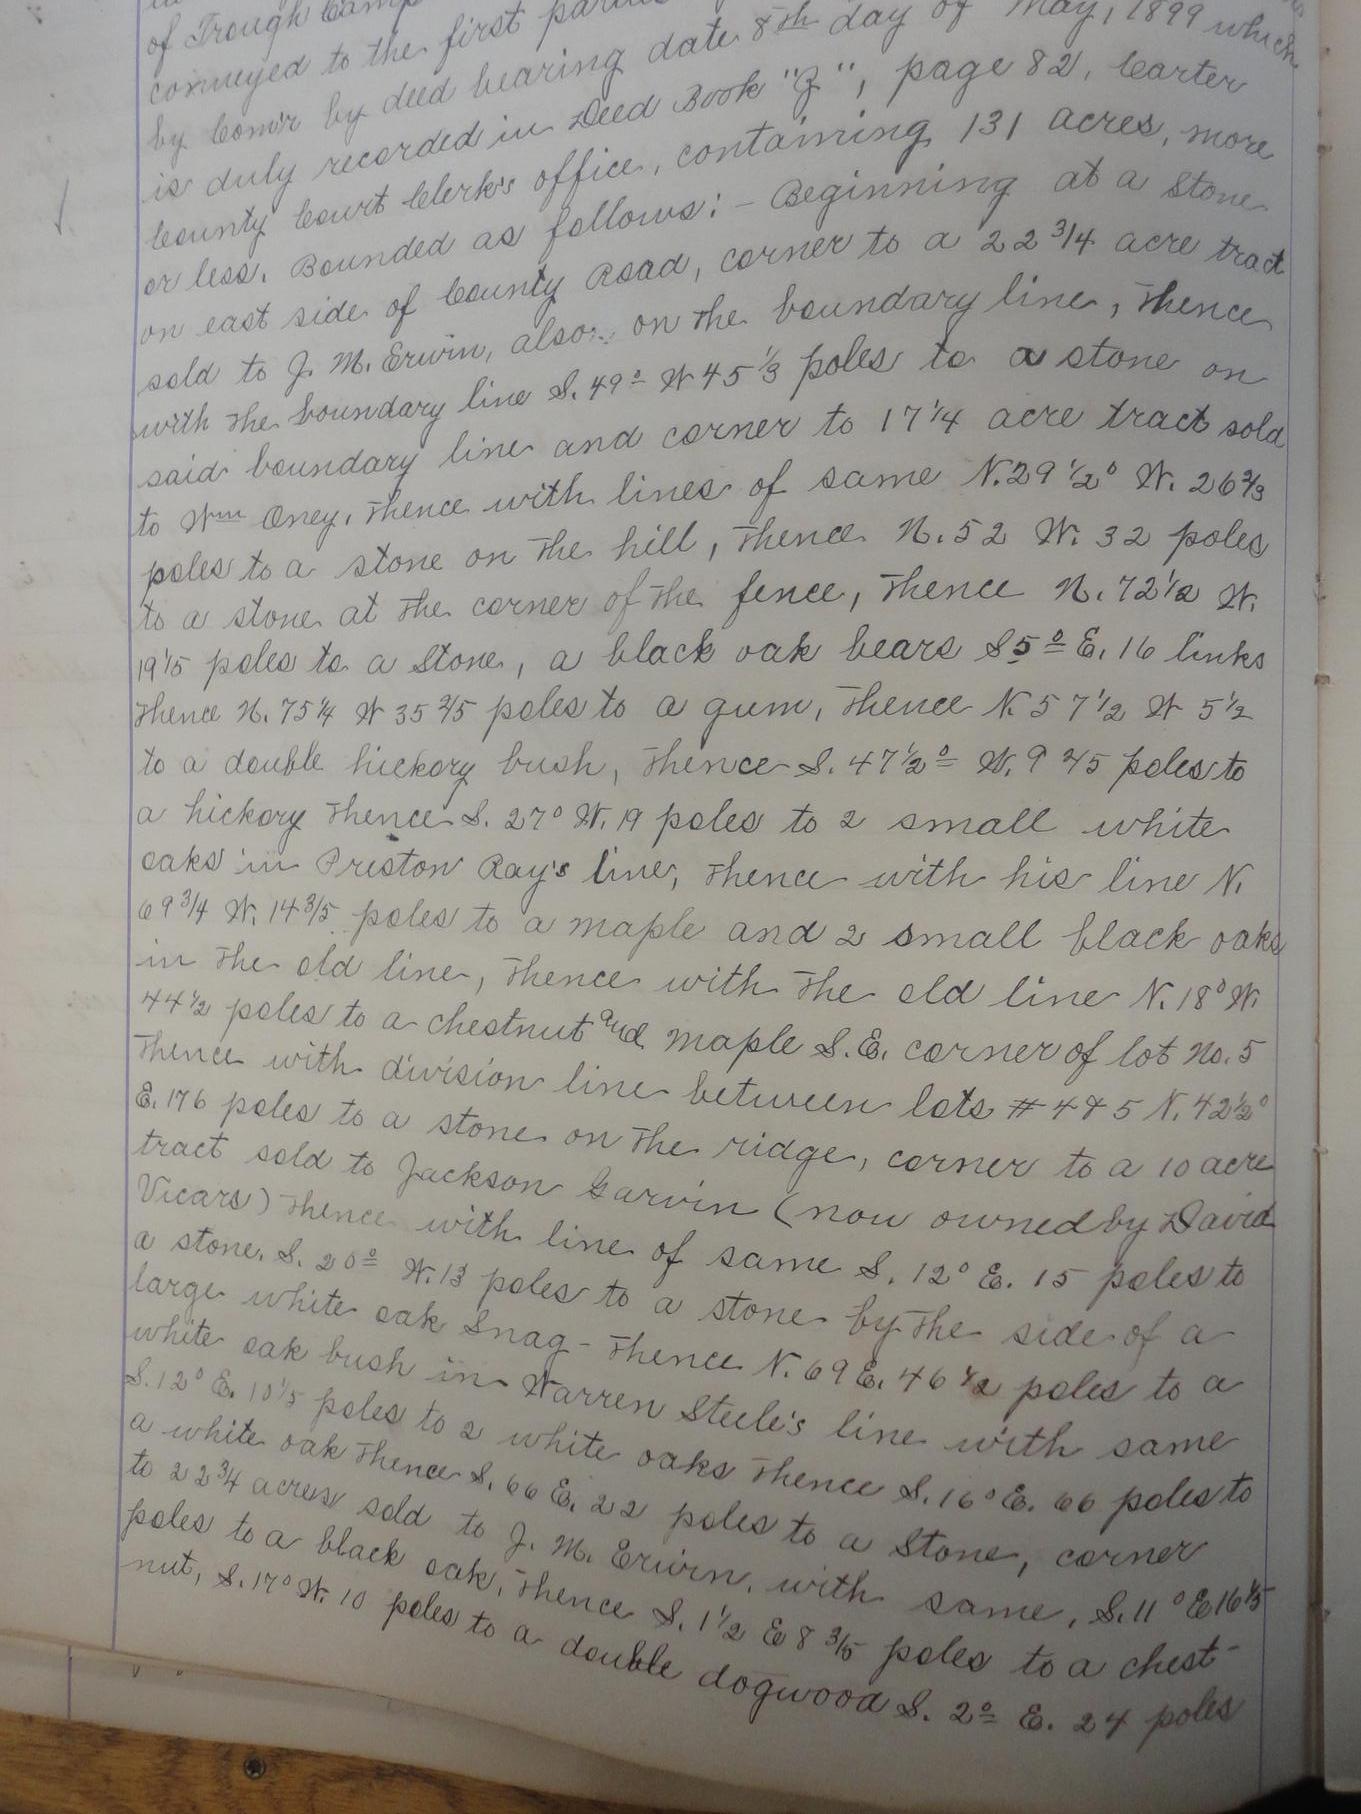 of Trough Camp
conveyed to the first
by Com'r by deed bearing date 8th day of May, 1899 which
is duly recorded in Deed Book "Z", page 82, Carter
County Court Clerk's office, containing 131 acres, more
or less. Bounded as follows:- Beginning at a Stone
on east side of County Road, corner to a 22 3/4 acre tract
sold to J. M. Erwin, also on the boundary line, Thence
with the boundary line S. 49° W 45 1/3 poles to a stone on
said boundary line and corner to 17 1/4 acre tract sold
to Wm Oney, Thence with lines of same N. 29 1/2° W. 26 2/3
poles to a stone on the hill, Thence N. 52 W. 32 poles
to a stone at the corner of the fence, Thence N. 72 1/2 W.
19 1/5 poles to a Stone, a black oak bears S 5° E. 16 links
Thence N. 75 1/4 W 35 2/5 poles to a gum, Thence N. 57 1/2 W 5 1/2
to a double hickory bush, Thence S. 47 1/2° W. 9 2/5 poles to
a hickory Thence S. 27° W. 19 poles to 2 small white
oaks in Preston Ray's line, Thence with his line N.
69 3/4 W. 14 3/5 poles to a maple and 2 small black oaks
in the old line, Thence with the old line N. 18° W.
44 1/2 poles to a chestnut and maple S.E. corner of lot No. 5
Thence with division line between lots # 4 & 5 N. 42 1/2°
E. 176 poles to a stone on the ridge, corner to a 10 acre
tract sold to Jackson Garvin (now owned by David
Vicars) Thence with line of same S. 12° E. 15 poles to
a stone, S. 20° W. 13 poles to a stone by the side of a
large white oak Snag - Thence N. 69 E. 46 1/2 poles to a
white oak bush in Warren Steele's line with same
S. 12° E. 10 1/5 poles to 2 white oaks Thence S. 16° E. 66 poles to
a white oak Thence S. 66 E. 22 poles to a Stone, corner
to 22 3/4 acres sold to J. M. Erwin, with same, S. 11° E 16 1/5
poles to a black oak, Thence S. 1 1/2 E 8 3/5 poles to a chest-
nut, S. 17° W. 10 poles to a double dogwood S. 2° E. 24 poles